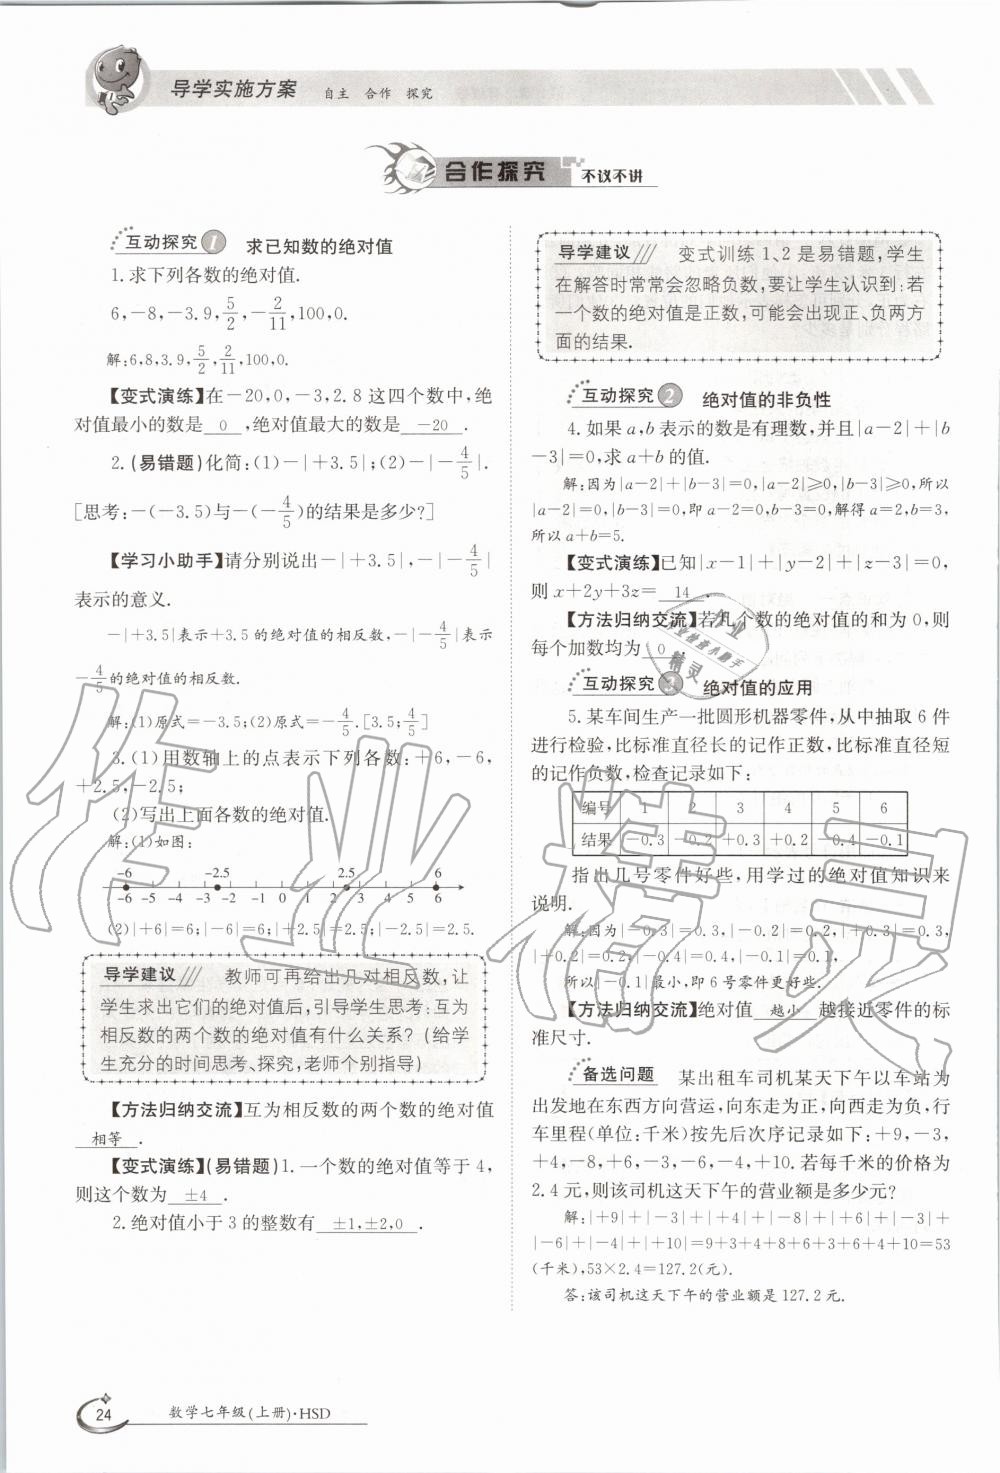 导学实施方案 自主 合作 探究
合作探究 不议不讲
互动探究1 求已知数的绝对值
1.求下列各数的绝对值.
6,-8,-3.9,5/2,-2/11,100,0.
解:6,8,3.9,5/2,2/11,100,0.
【变式演练】在-20,0,-3,2.8这四个数中,绝
对值最小的数是 0 ,绝对值最大的数是 -20 .
2.(易错题)化简:(1)-|+3.5|;(2)-|-4/5|.
[思考:-(-3.5)与-(-4/5)的结果是多少?]
【学习小助手】请分别说出-|+3.5|,-|-4/5|
表示的意义.
-|+3.5|表示+3.5的绝对值的相反数,-|-4/5|表示
-4/5的绝对值的相反数.
解:(1)原式=-3.5;(2)原式=-4/5.[3.5;4/5]
3.(1)用数轴上的点表示下列各数:+6,-6,
+2.5,-2.5;
(2)写出上面各数的绝对值.
解:(1)如图:
-6 -2.5 2.5 6
-6 -5 -4 -3 -2 -1 0 1 2 3 4 5 6
(2)|+6|=6;|-6|=6;|+2.5|=2.5;|-2.5|=2.5.
导学建议 教师可再给出几对相反数,让
学生求出它们的绝对值后,引导学生思考:互为
相反数的两个数的绝对值有什么关系?(给学
生充分的时间思考、探究,老师个别指导)
【方法归纳交流】互为相反数的两个数的绝对值
相等 .
【变式演练】(易错题)1.一个数的绝对值等于4,
则这个数为 ±4 .
2.绝对值小于3的整数有 ±1,±2,0 .
导学建议 变式训练1、2是易错题,学生
在解答时常常会忽略负数,要让学生认识到:若
一个数的绝对值是正数,可能会出现正、负两方
面的结果.
互动探究2 绝对值的非负性
4.如果a,b表示的数是有理数,并且|a-2|+|b
-3|=0,求a+b的值.
解:因为|a-2|+|b-3|=0,|a-2|≥0,|b-3|≥0,所以
|a-2|=0,|b-3|=0,即a-2=0,b-3=0,解得a=2,b=3,
所以a+b=5.
【变式演练】已知|x-1|+|y-2|+|z-3|=0,
则x+2y+3z= 14 .
【方法归纳交流】若几个数的绝对值的和为0,则
每个加数均为 0 .
互动探究3 绝对值的应用
5.某车间生产一批圆形机器零件,从中抽取6件
进行检验,比标准直径长的记作正数,比标准直径短
的记作负数,检查记录如下:
编号 1 2 3 4 5 6
结果 -0.3 -0.2 +0.3 +0.2 -0.4 -0.1
指出几号零件好些,用学过的绝对值知识来
说明.
解:因为|-0.3|=0.3,|-0.2|=0.2,|+0.3|=0.3,
|+0.2|=0.2,|-0.4|=0.4,|-0.1|=0.1,
所以|-0.1|最小,即6号零件更好些.
【方法归纳交流】绝对值 越小 越接近零件的标
准尺寸.
备选问题 某出租车司机某天下午以车站为
出发地在东西方向营运,向东走为正,向西走为负,行
车里程(单位:千米)按先后次序记录如下:+9,-3,
+4,-8,+6,-3,-6,-4,+10.若每千米的价格为
2.4元,则该司机这天下午的营业额是多少元?
解:|+9|+|-3|+|+4|+|-8|+|+6|+|-3|+
|-6|+|-4|+|+10|=9+3+4+8+6+3+6+4+10=53
(千米),53×2.4=127.2(元).
答:该司机这天下午的营业额是127.2元.
24 数学七年级(上册)·HSD
作业精灵